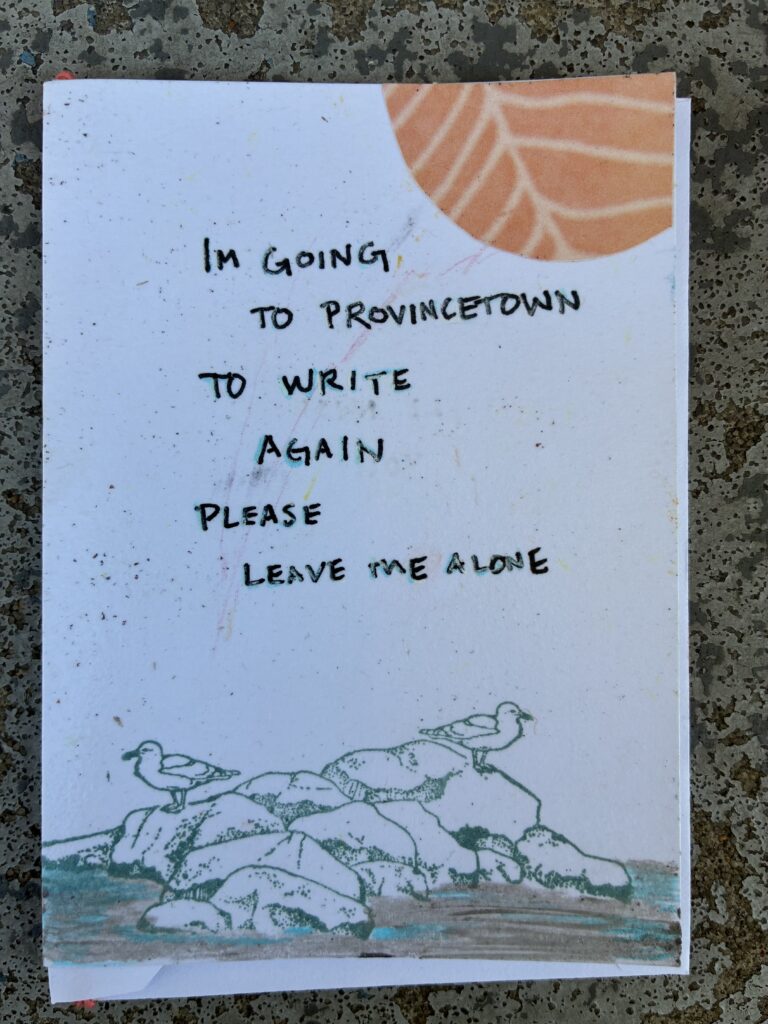 IM GOING
TO PROVINCETOWN
TO WRITE
AGAIN
PLEASE
LEAVE ME ALONE